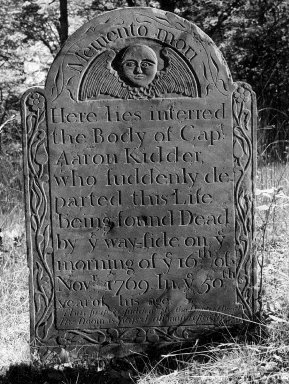 Memento mori
Here lies interred
the Body of Capt
Aaron Kidder,
who suddenly de
parted this Life
being found Dead
by ẏ way-side on ẏ
morning of ẏ 16th of
Novr 1769 In ẏ 50th
year of his age